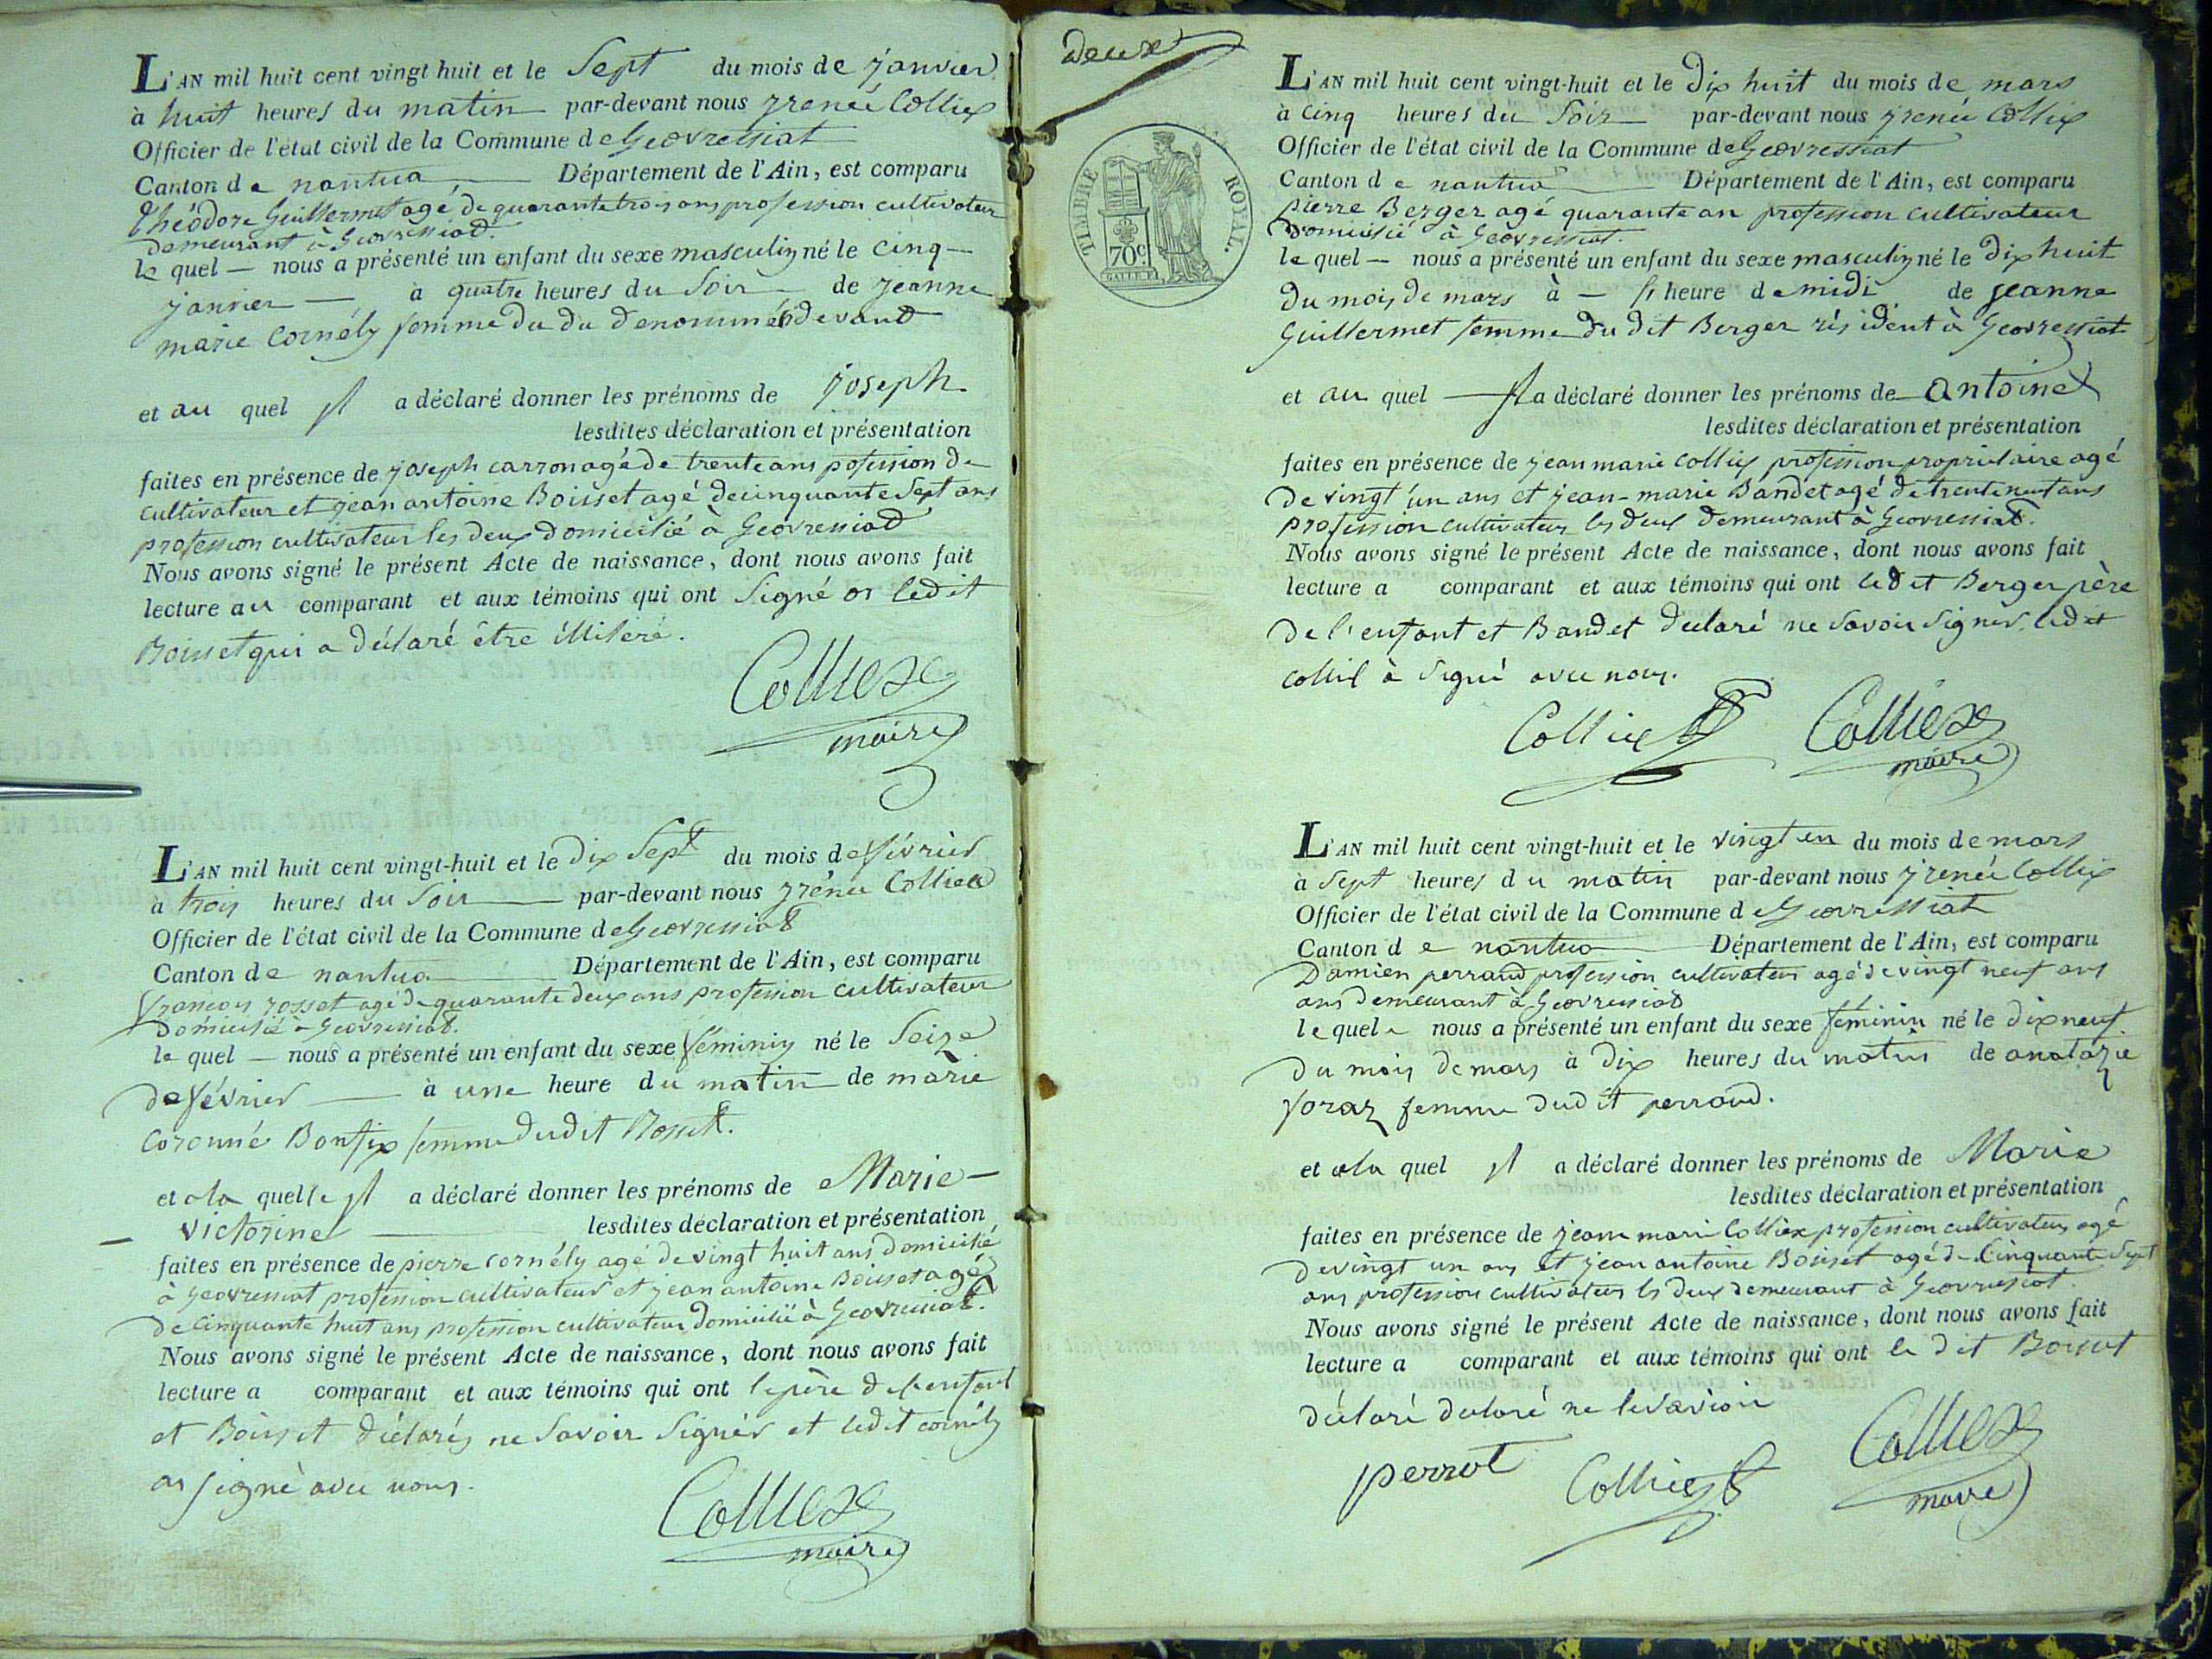 L'AN mil huit cent vingt huit et le Sept du mois de janvier
à huit heures du matin par-devant nous jrenée Colliex
Officier de l'état civil de la Commune de Geovressiat
Canton de nantua Département de l'Ain, est comparu
théodore Guillermet agé de quarante trois ans profession cultivateur
demeurant à Geovressiat.
le quel — nous a présenté un enfant du sexe masculin né le cinq —
janvier — à quatre heures du Soir de jeanne
marie Cornély femme du du denommé devant
et au quel jl a déclaré donner les prénoms de joseph
lesdites déclaration et présentation
faites en présence de joseph carron agé de trente ans pofession de
cultivateur et jean antoine Boisset agé de cinquante Sept ans
profession cultivateur les deux domicilié à Geovressiat
Nous avons signé le présent Acte de naissance, dont nous avons fait
lecture au comparant et aux témoins qui ont Signé or ledit
Boisset qui a déclaré être illiteré.
Colliex
maire
L'AN mil huit cent vingt-huit et le dix Sept du mois de février
à trois heures du Soir par-devant nous jrénée Colliex
Officier de l'état civil de la Commune de Geovressiat
Canton de nantua Département de l'Ain, est comparu
françois rosset agé de quarante deux ans profession cultivateur
domicilié à Geovressiat.
le quel — nous a présenté un enfant du sexe féminin né le Seize
de février — à une heure du matin de marie
Coronné Bonfix femme dudit Rosset.
et a la quelle jl a déclaré donner les prénoms de Marie —
victorine lesdites déclaration et présentation
faites en présence de pierre cornély agé de vingt huit ans domicilié
à Geovressiat profession cultivateur et jean antoine Boisset agé
de cinquante huit ans profession cultivateur domicilié à Geovressiat.
Nous avons signé le présent Acte de naissance, dont nous avons fait
lecture a comparant et aux témoins qui ont le père de l'enfant
et Boisset déclarés ne Savoir Signér et ledit cornély
as signé avec nous.
Colliex
maire
deux
TIMBRE ROYAL.
70c
L'AN mil huit cent vingt-huit et le dix huit du mois de mars
à Cinq heures du Soir par-devant nous jrenée Colliex
Officier de l'état civil de la Commune de Geovressiat
Canton de nantua Département de l'Ain, est comparu
pierre Berger agé quarante an profession cultivateur
domicilié à Geovressiat.
le quel — nous a présenté un enfant du sexe masculin né le dix huit
du mois de mars à — heure de midi de jeanne
Guillermet femme du dit Berger résident à Geovressiat
et au quel — jl a déclaré donner les prénoms de antoine
lesdites déclaration et présentation
faites en présence de jean marie colliex profession propriétaire agé
de vingt un ans et jean-marie Bandet agé de trente neuf ans
profession cultivateur les deux demeurant à Geovressiat.
Nous avons signé le présent Acte de naissance, dont nous avons fait
lecture a comparant et aux témoins qui ont ledit Berger père
de l'enfant et Bandet declaré ne Savoir Signér ledit
à Signé avec nous.
Colliex Colliex
maire
L'AN mil huit cent vingt-huit et le vingt un du mois de mars
à Sept heures du matin par-devant nous jrenée Colliex
Officier de l'état civil de la Commune de Geovressiat
Canton de nantua Département de l'Ain, est comparu
Damien perraud profession cultivateur agé de vingt neuf ans
ans demeurant à Geovressiat
le quel nous a présenté un enfant du sexe féminin né le dix neuf
du mois de mars à dix heures du matin de anatazie
joraz femme dudit perraud.
et ala quel jl a déclaré donner les prénoms de Marie
lesdites déclaration et présentation
faites en présence de jean marie Colliex profession cultivateur agé
de vingt un ans et jean antoine Boisset agé de Cinquante Sept
ans profession cultivateur les deux demeurant à Geovressiat.
Nous avons signé le présent Acte de naissance, dont nous avons fait
lecture a comparant et aux témoins qui ont le dit Boisset
déclaré declaré ne
perrot Colliex Colliex
maire